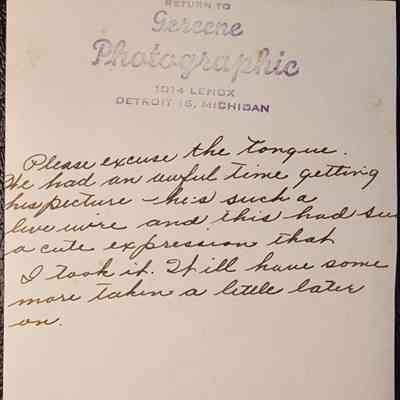 RETURN TO
Gereene
Photographic
1014 LENOX
DETROIT 15, MICHIGAN
Please excuse the tongue.
We had an awful time getting
his picture - he's such a
live wire and this had su
a cute expression that
I took it. I'll have some
more taken a little later
on.